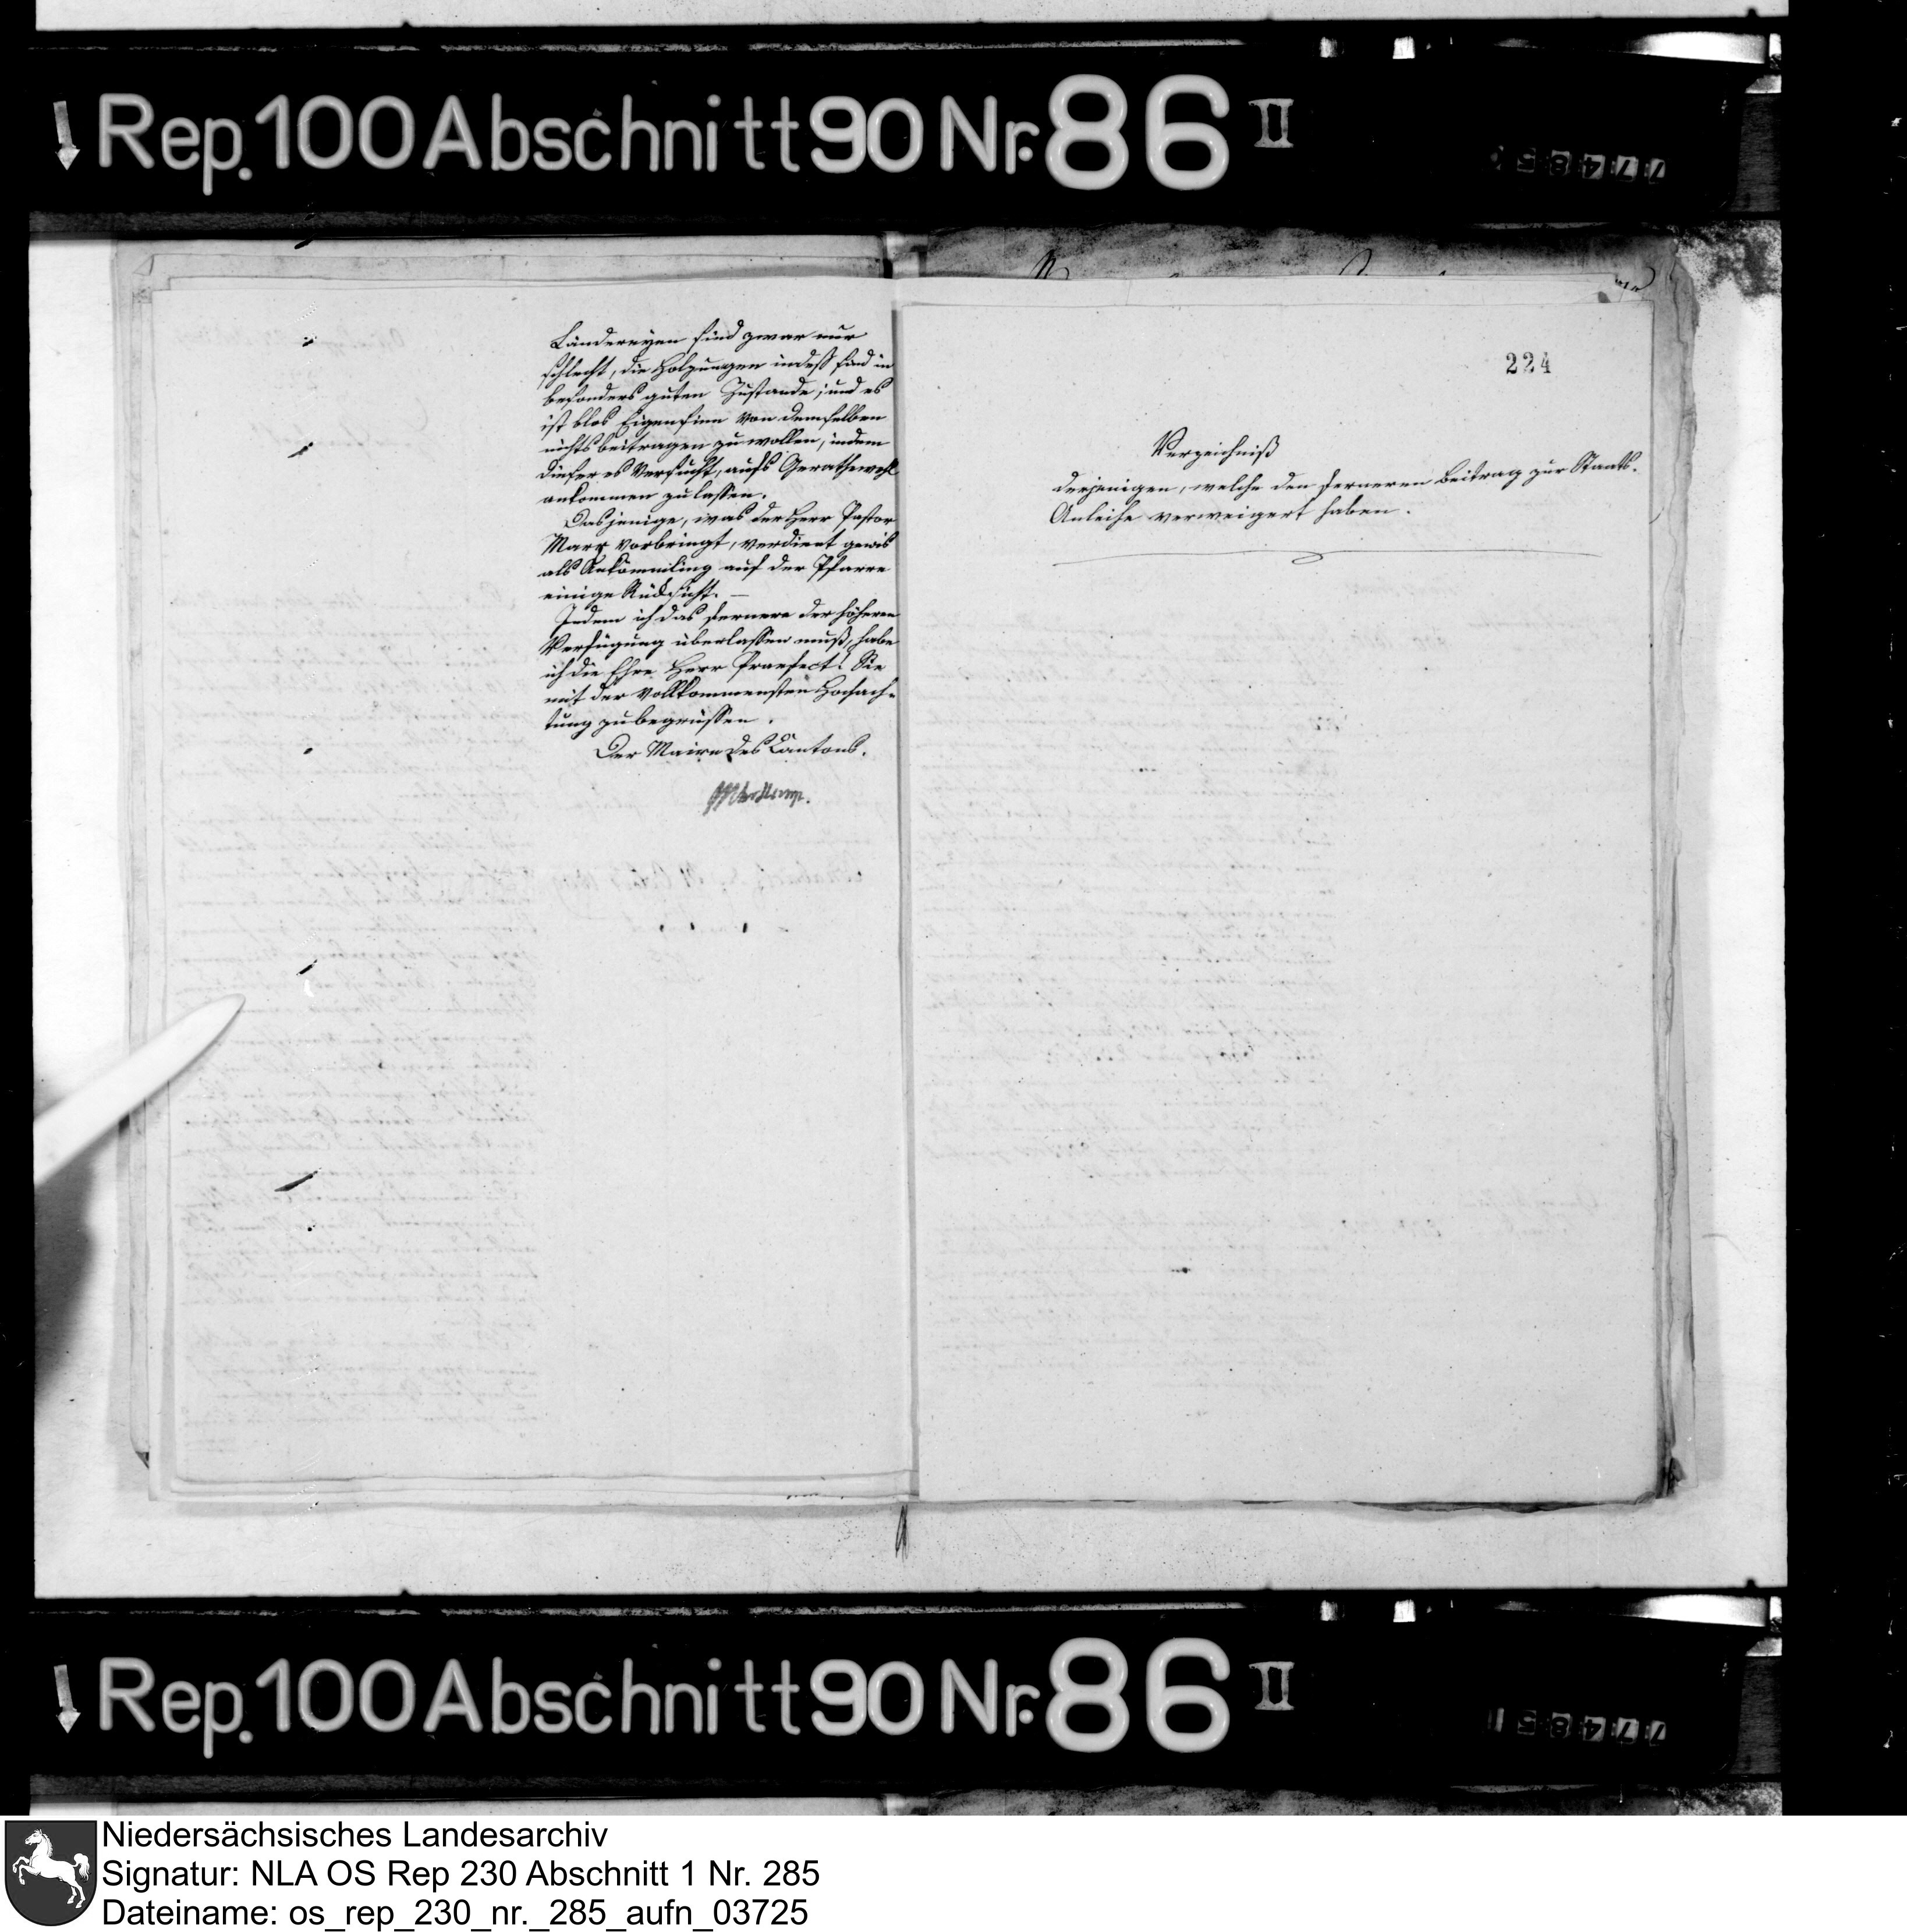 Rep. 100 Abschnitt 90 Nr. 86 II
77485
Ländereyen sind zwar nur
schlecht, die Holzungen indeß sind in
besonders guten Zustande; und es
ist blos Eigensinn von demselben
nichts beitragen zu wollen, indem
dieser es versucht, aufs Gerathewohl
ankommen zu lassen.
Dasjenige, was der Herr Pastor
Marx vorbringt, verdient gewis
als Ankömmling auf der Pfarre
einige Rücksicht. —
Indem ich das fernere der höheren
Verfügung überlassen muß, habe
ich die Ehre Herr Praefect! Sie
mit der vollkommensten Hochach-
tung zu begrüssen.
Der Maire des Cantons.
224
Verzeichniß
derjenigen, welche den ferneren Beitrag zur Staats-
Anleihe verweigert haben.
Rep. 100 Abschnitt 90 Nr. 86 II
77485
Niedersächsisches Landesarchiv
Signatur: NLA OS Rep 230 Abschnitt 1 Nr. 285
Dateiname: os_rep_230_nr._285_aufn_03725